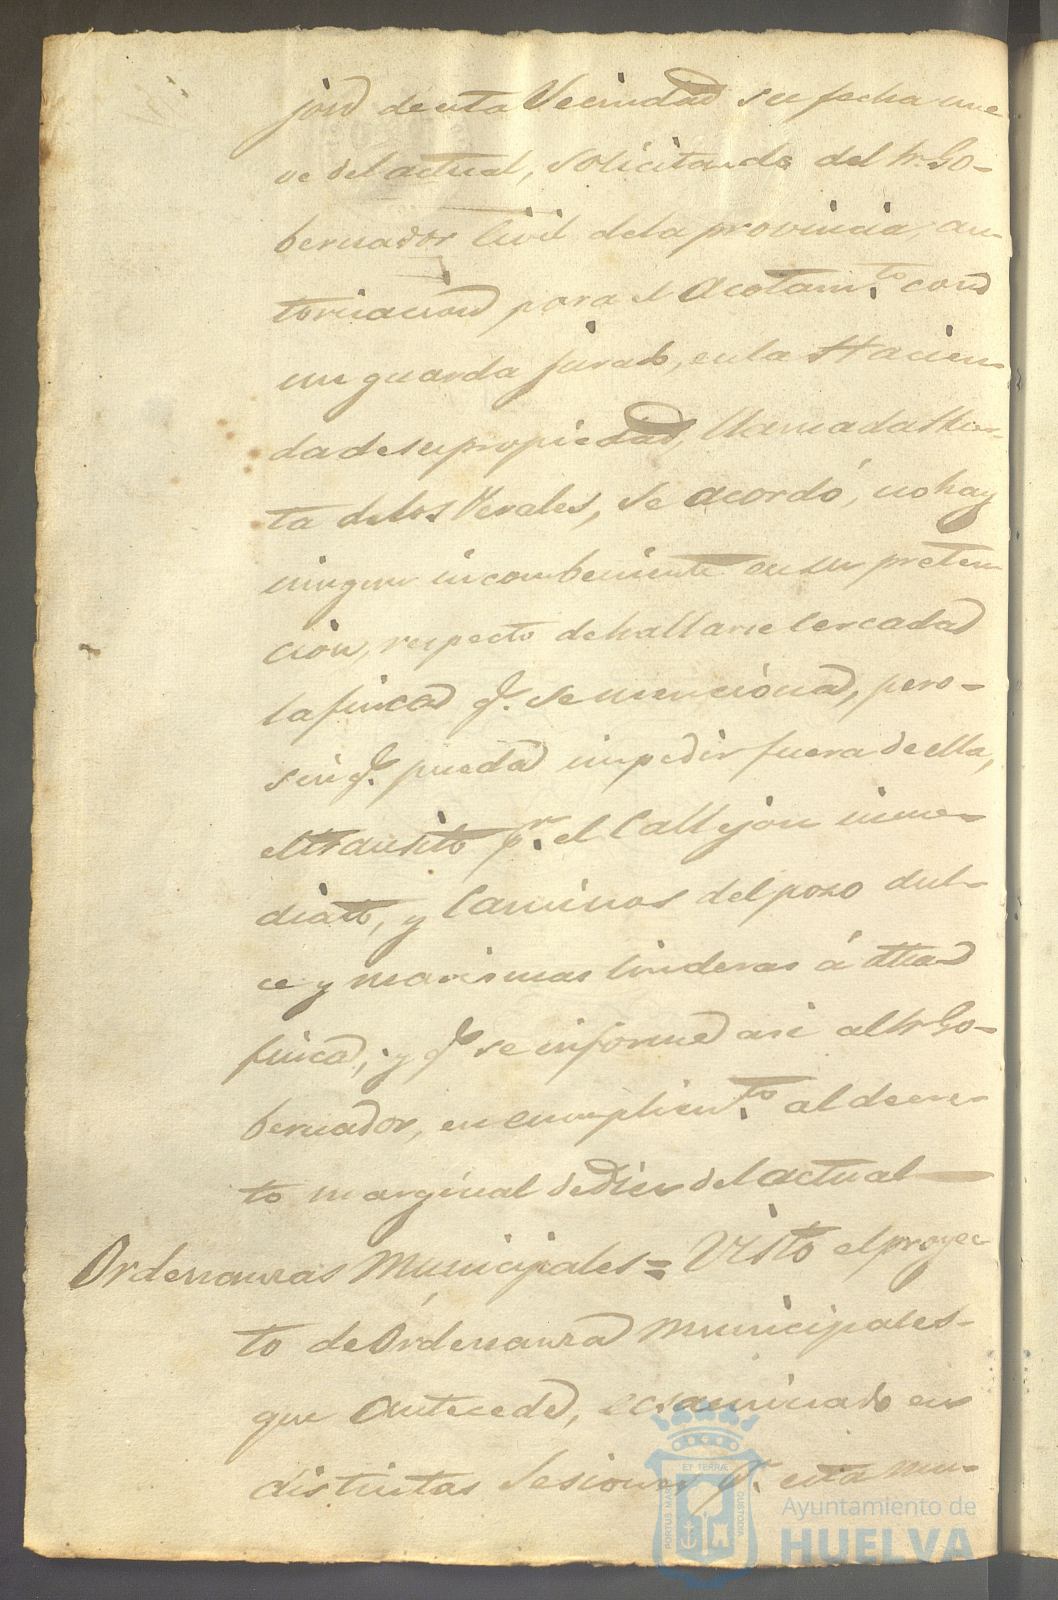 jon de esta Vecindad su fecha nue
ve del actual, solicitando del Sr. Go-
bernador Civil de la provincia, au-
torizacion para el Acotam.to con
un guarda jurado, en la Hacien-
da de su propiedad, llamada Huer-
ta de los Perales, se acordó, no hay
ningun incombeniente en su preten
cion, respecto de hallarse cercada
la finca q.e se menciona, pero-
sin q.e pueda impedir fuera de ella,
el transito p.r el Callejon inme-
diato, y Caminos del pozo dul-
ce y marismas linderas á dha
finca, y q.e se informe asi al Sr. Go-
bernador, en cumplim.to al decre-
to marginal de Diez del actual
Ordenanzas Municipales = Visto el proyec
to de Ordenanza Municipales-
que Antecede, ecsaminado en
distintas Sesiones p.r esta Mu-
PORTUS MARIS ET TERRÆ CUSTODIA
Ayuntamiento de
HUELVA